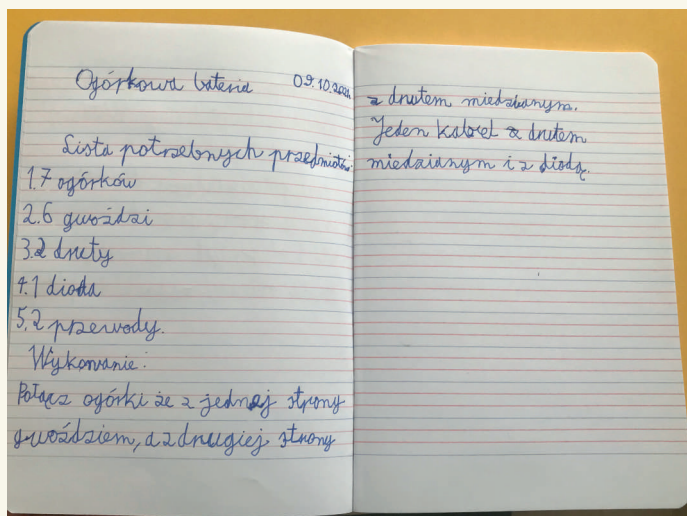 Ogórkowa bateria 09.10.202
Lista potrzebnych przedmiotów:
1.7 ogórków
2.6 gwoździ
3.2 druty
4.1 dioda
5.2 przewody.
Wykonanie:
Połącz ogórki że z jednej strony
gwoździem, a z drugiej strony
z drutem miedzianym.
Jeden kabel z drutem
miedzianym i z diodą.